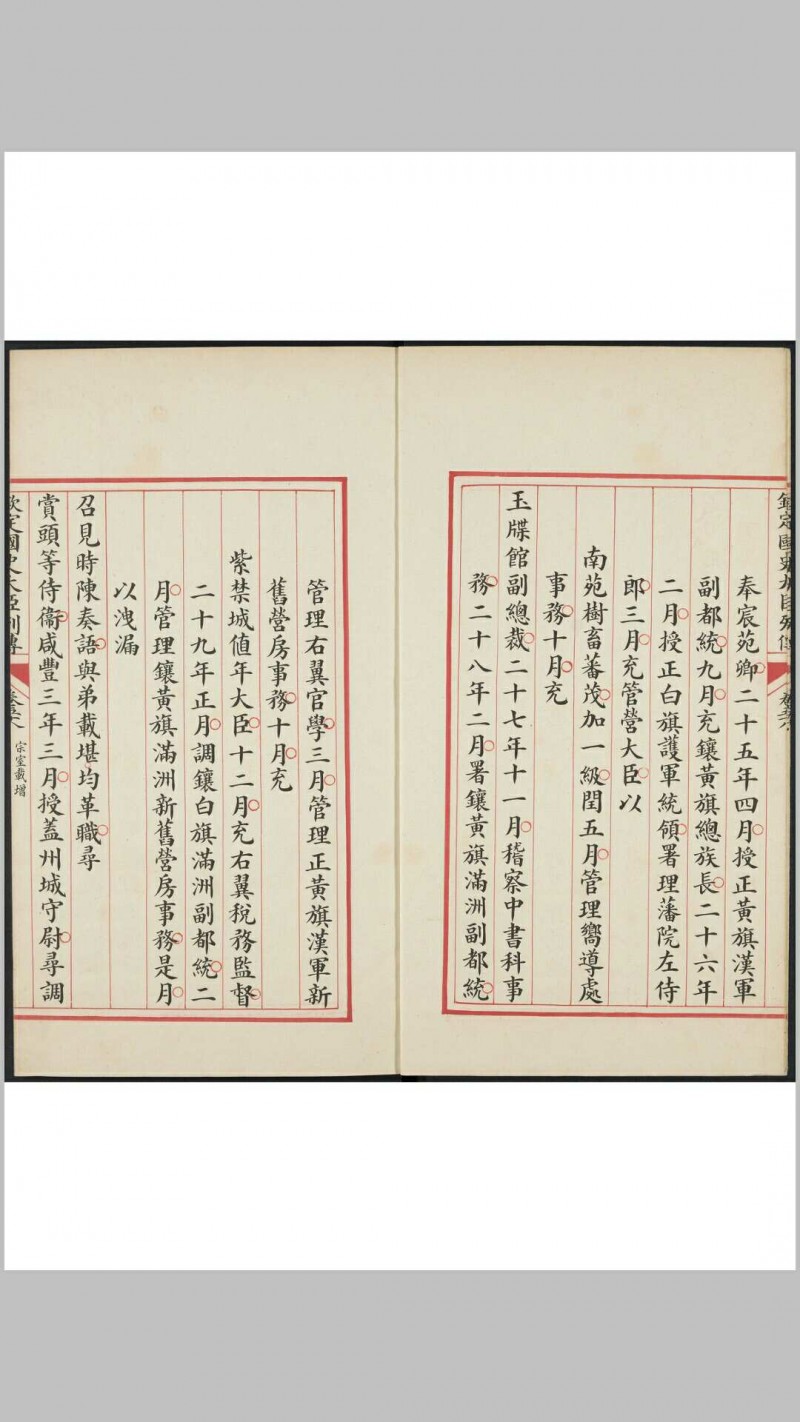 奉宸苑卿二十五年四月授正黃旗漢軍
副都統九月充鑲黃旗總族長二十六年
二月授正白旗護軍統領署理藩院左侍
郎三月充管營大臣以
南苑樹畜蕃茂加一級閏五月管理嚮導處
事務十月充
玉牒館副總裁二十七年十一月稽察中書科事
務二十八年二月署鑲黃旗滿洲副都統
管理右翼官學三月管理正黃旗漢軍新
舊營房事務十月充
紫禁城値年大臣十二月充右翼稅務監督
二十九年正月調鑲白旗滿洲副都統二
月管理鑲黃旗滿洲新舊營房事務是月
以洩漏
召見時陳奏語與弟載堪均革職尋
賞頭等侍衞咸豐三年三月授蓋州城守尉尋調
欽定國史大臣列傳
宗室載增